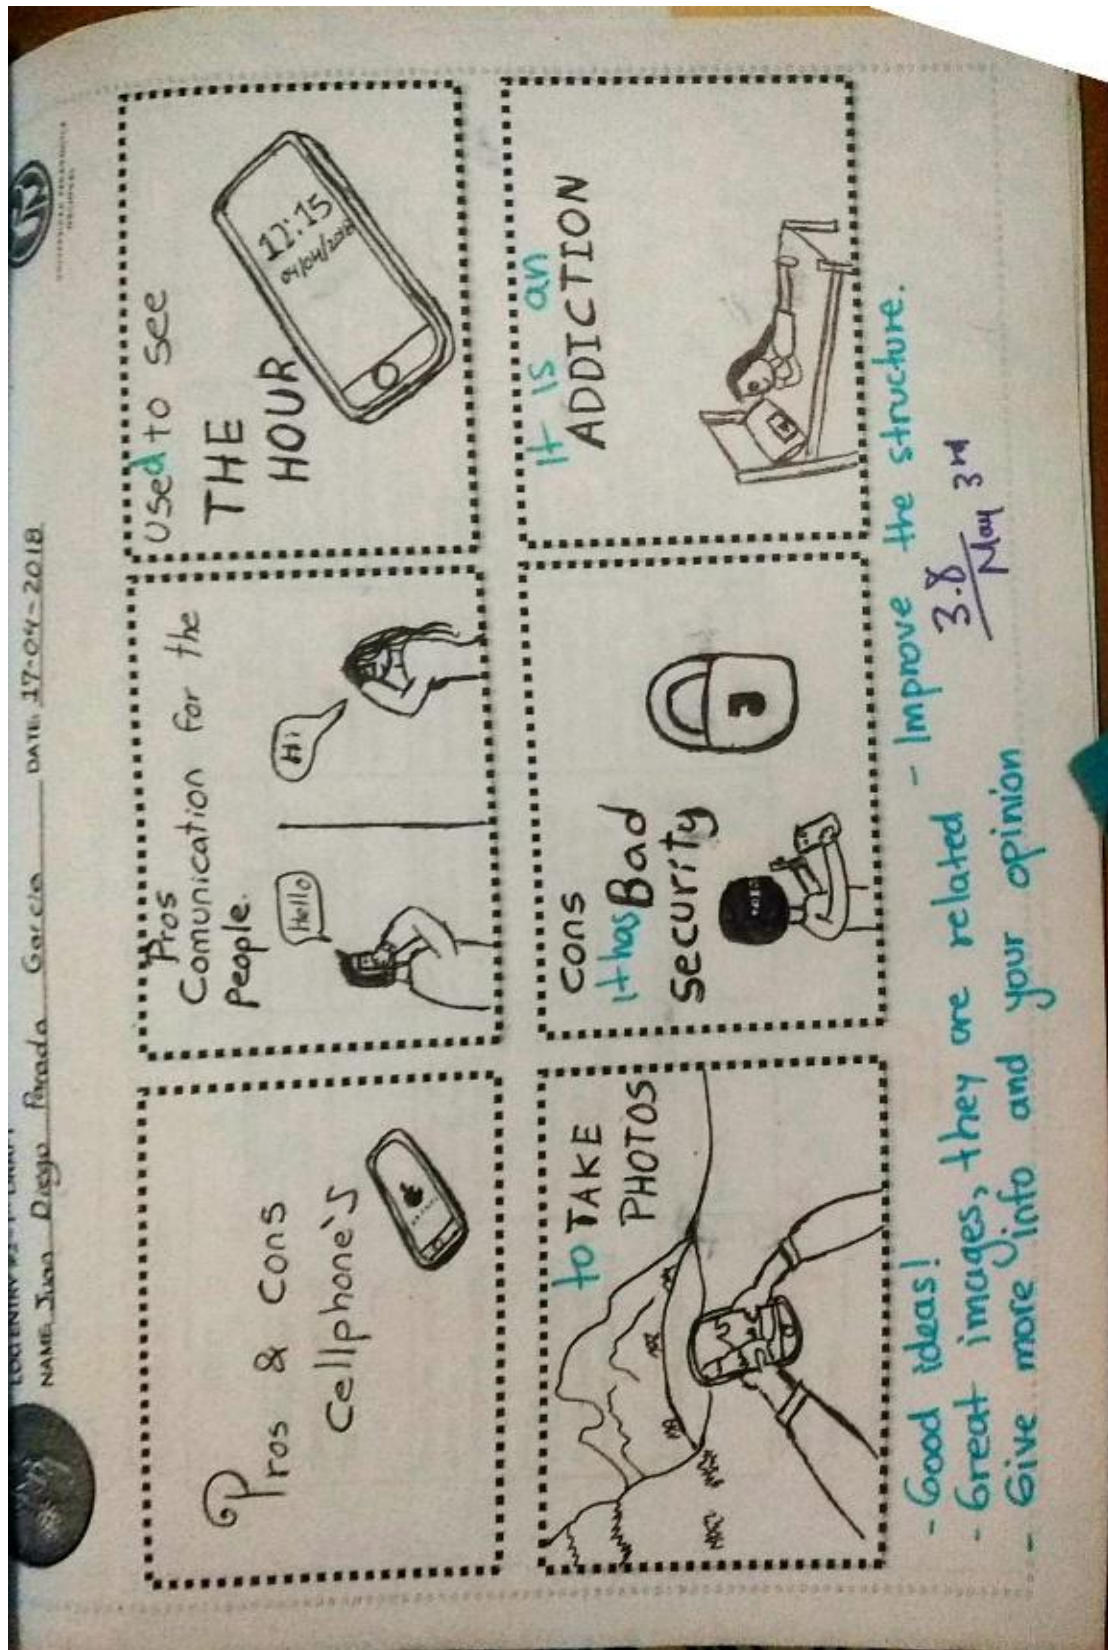 NAME: Juan Diego Parada Garcia DATE: 17-04-2018
Pros & Cons
Cellphone's
Pros
Comunication for the
People.
Hello
Hi
Used to see
THE
HOUR
12:15
04/04/2018
to TAKE
PHOTOS
Cons
It has Bad
Security
It is an
ADDICTION
- Good ideas!
- Great images, they are related
- Give more info and your opinion
- Improve the structure.
3.8
May 3rd